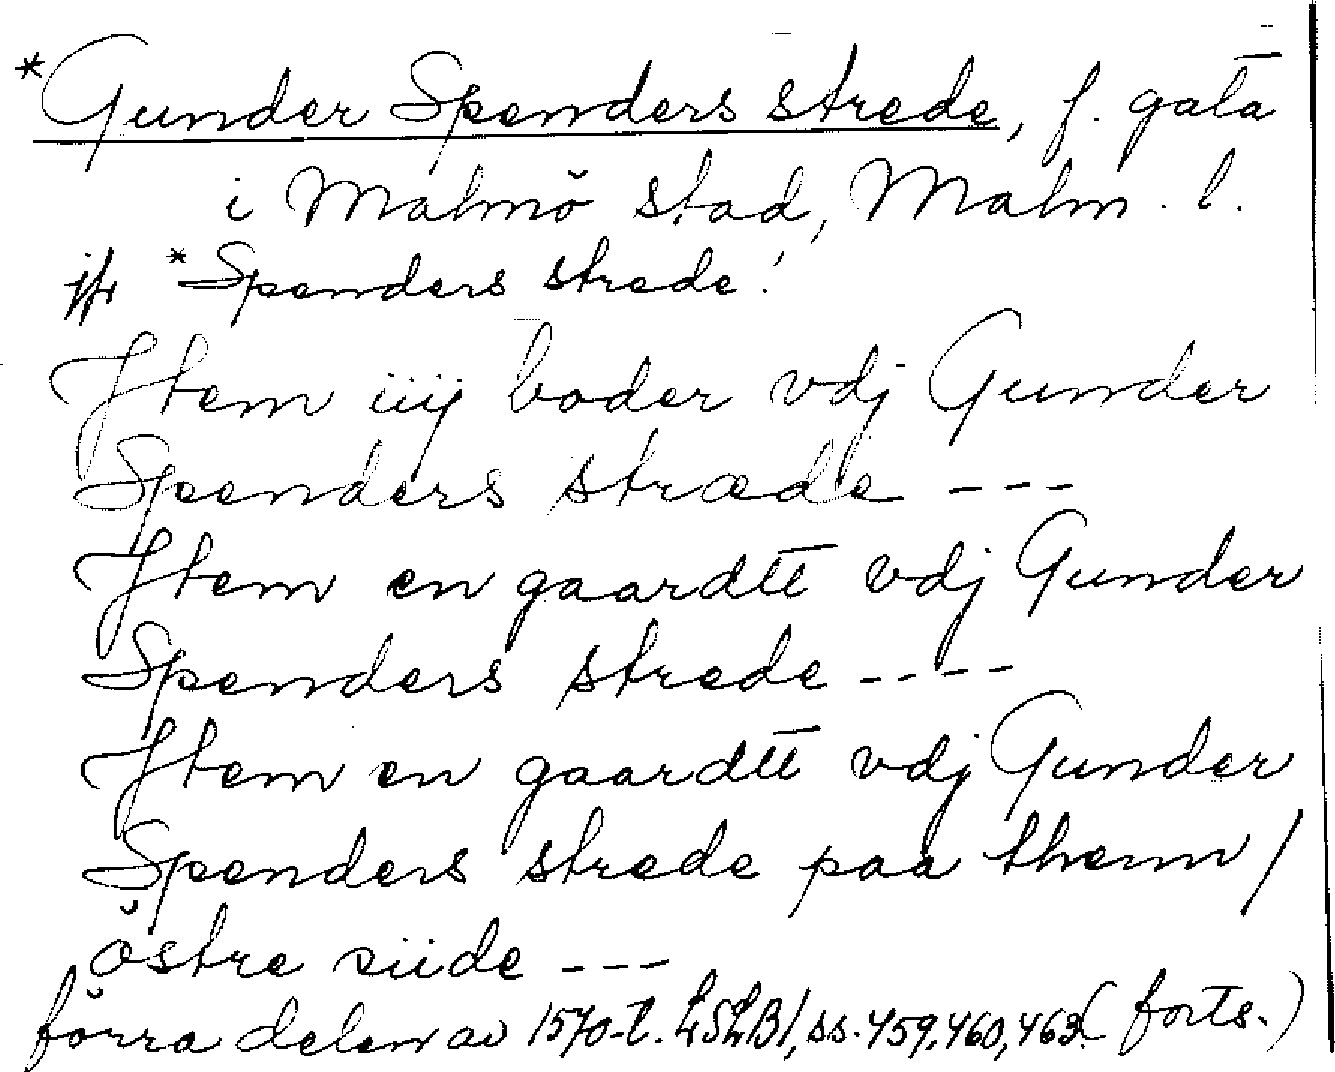 *Gunder Spenders strede, f. gata
i Malmö stad, Malm. l.
jfr *Spenders strede!
Item iiij boder vdj Gunder
Spenders stræde ---
Item en gaardtt vdj Gunder
Spenders strede ----
Item en gaardtt vdj Gunder
Spenders strede paa thenn /
östre siide ---
förra delen av 1570-t. LSLB1, ss. 459, 460, 463. (forts.)